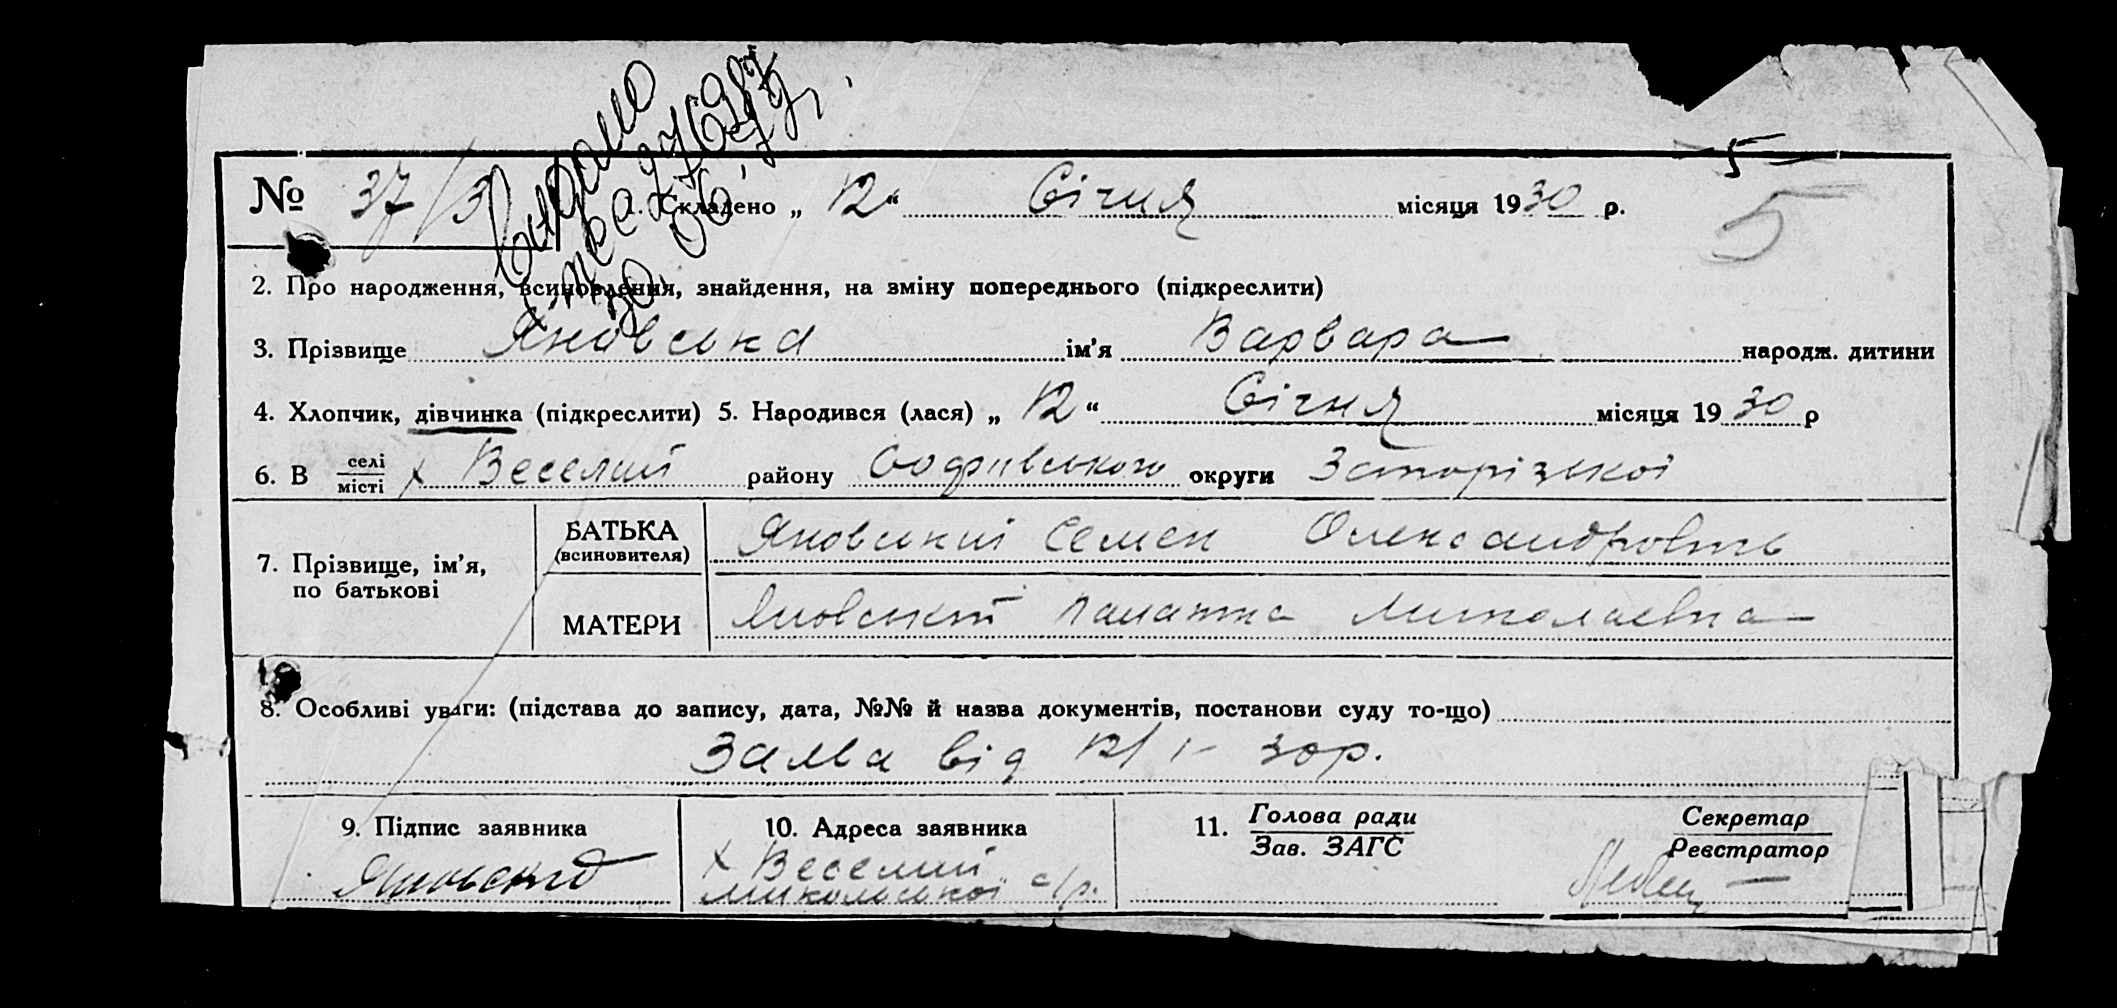 5
№ 37/3 1. Складено „ 12 “ Січня місяця 1930 р. 5
Видано
2. Про народження, всиновлення, знайдення, на зміну попереднього (підкреслити)
3. Прізвище Яновська ім’я Варвара народж. дитини
4. Хлопчик, дівчинка (підкреслити) 5. Народився (лася) „ 12 “ Січня місяця 1930 р
6. В селі місті х Веселий району Софиівського округи Запорізької
7. Прізвище, ім’я, по батькові
БАТЬКА (всиновителя) Яновський Семен Олександрович
МАТЕРИ Яновський Палажка Миколаевна
8. Особливі уваги: (підстава до запису, дата, №№ й назва документів, постанови суду то-що)
Заява від 12/1- 30р.
9. Підпис заявника 10. Адреса заявника 11. Голова ради Зав. ЗАГС Секретар Реєстратор
х Веселий
Микольської с/р.